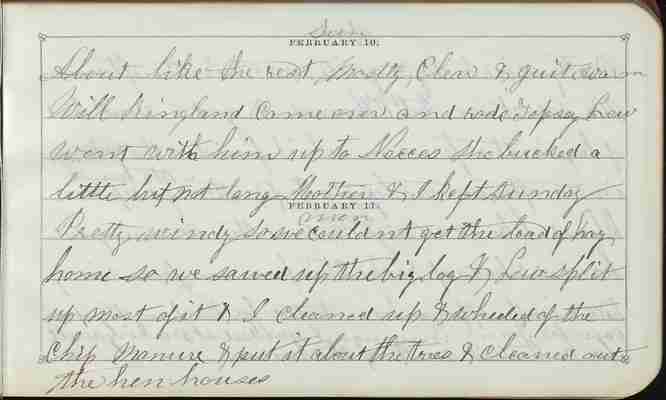 Sun
FEBRUARY 10.
About like the rest Mostly Clear & quite warm
Will Kingland Came over and rode Topsey Lew
went with him up to Noeces She bucked a
little but not long Mother & I kept Sunday
FEBRUARY 11.
mon
Pretty windy so we couldnt get the load of hay
home so we sawed up the big log & Lew split
up most of it & I cleaned up & wheeled of the
Chip Manure & put it about the trees & Cleaned out
the hen houses